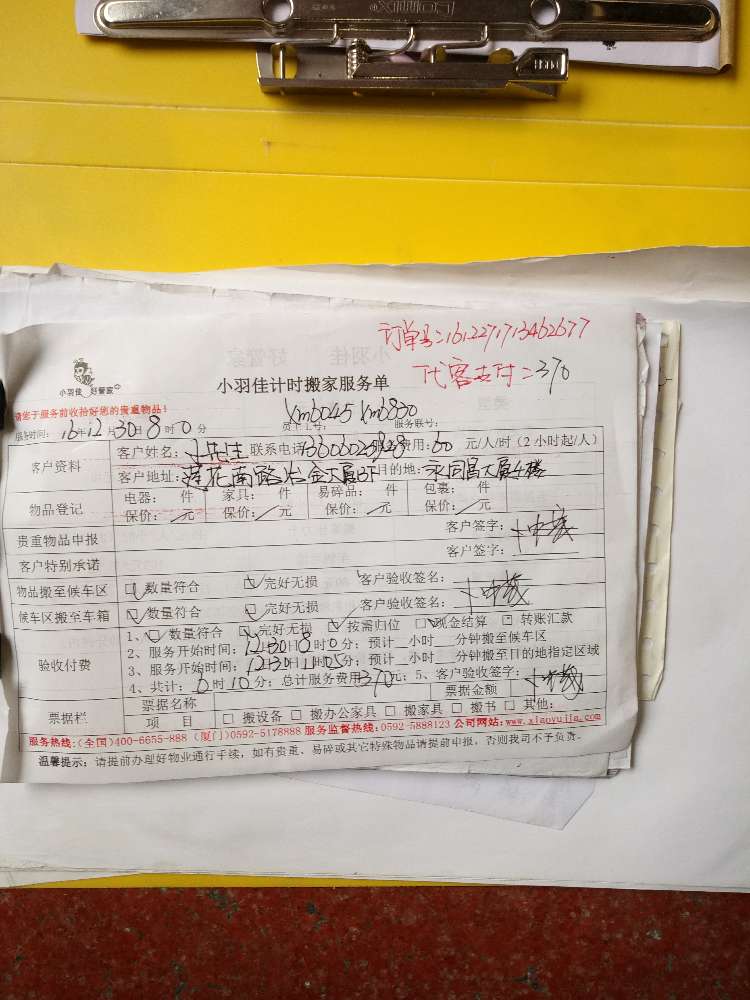 订单号:161227171346267​7
代客支付:370
小羽佳 好管家
小羽佳计时搬家服务单
请您于服务前收拾好您的贵重物品!
Xm6045 Xm6830
服务时间: 16年12月30日8时0分 员工工号: 服务联号:
客户资料
客户姓名: 卜先生 联系电话 服务费用:60元/人/时(2小时起/人)
客户地址:莲花南路冶金大厦3F 目的地: 永同昌大厦4楼
物品登记
电器: 件 家具: 件 易碎品: 件 包裹: 件
保价: /元 保价: /元 保价: /元 保价: /元
贵重物品申报 客户签字:
客户特别承诺 客户签字:
物品搬至候车区 数量符合 完好无损 客户验收签名:
候车区搬至车箱 数量符合 完好无损 客户验收签名:
验收付费
1、数量符合 完好无损 按需归位 现金结算 转账汇款
2、服务开始时间:12月30日8时0分;预计__小时__分钟搬至候车区
3、服务开始时间:12月30日11时05分;预计__小时__分钟搬至目的地指定区域
4、共计:6时10分;总计服务费用370元;5、客户验收签字:
票据栏
票据名称 票据金额
项 目 搬设备 搬办公家具 搬家具 搬书 其他:
服务热线:(全国)400-6655-888 (厦门)0592-5178888 服务监督热线:0592-5888123 公司网站:www.xiaoyujia.com
温馨提示:请提前办理好物业通行手续,如有贵重、易碎或其它特殊物品请提前申报,否则我司不予负责。